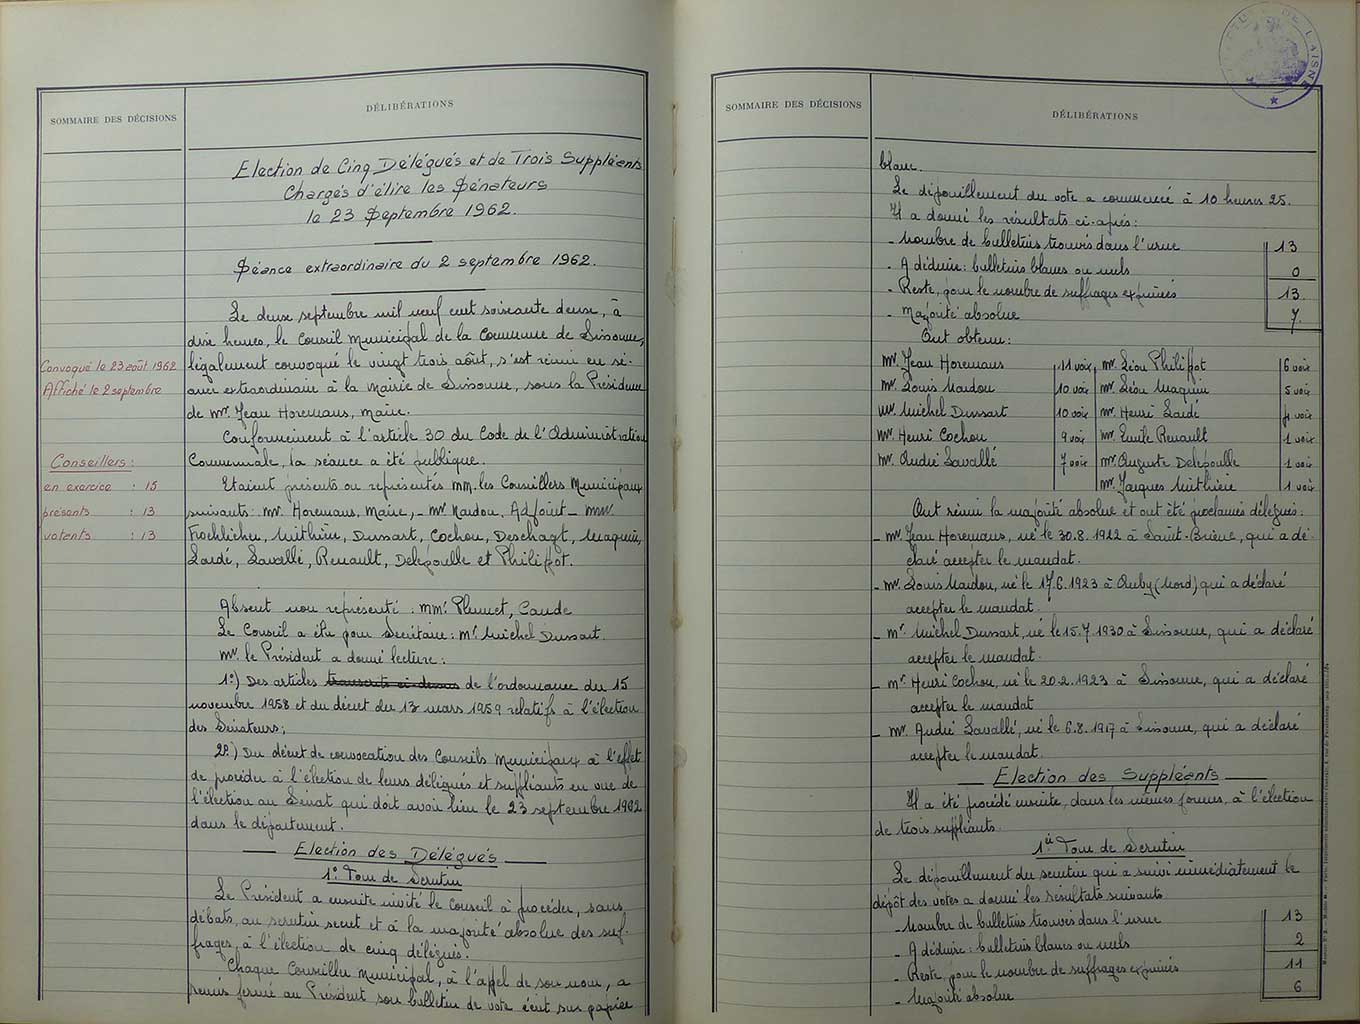 SOMMAIRE DES DÉCISIONS
DÉLIBÉRATIONS
Election de Cinq Délégués et de Trois Suppléants
Chargés d'élire les Sénateurs
le 23 Septembre 1962.
Séance extraordinaire du 2 septembre 1962.
Le deux septembre mil neuf cent soixante deux, à
dix heures, le Conseil Municipal de la Commune de Sissonne,
légalement convoqué le vingt trois août, s'est réuni en sé-
ance extraordinaire à la mairie de Sissonne, sous la Présidence
de Mr. Jean Horemans, Maire.
Conformément à l'article 30 du Code de l'Administration
Communale, la séance a été publique.
Etaient présents ou représentés MM. les Conseillers Municipaux
suivants: Mr. Horemans, Maire, - Mr Naudou, Adjoint - MM.
Froehlicher, Mithière, Dussart, Cochou, Deschagt, Maquin,
Lardé, Lavallé, Renault, Delépoulle et Philippot.
Convoqué le 23 août 1962
Affiché le 2 septembre
Conseillers:
en exercice : 15
présents : 13
votants : 13
Absent non représenté : MM. Plumet, Caude
Le Conseil a élu pour Secrétaire: Mr Michel Dussart.
Mr. le Président a donné lecture:
1°) Des articles transcrits ci-dessus de l'ordonnance du 15
novembre 1958 et du décret du 13 mars 1959 relatifs à l'élection
des Sénateurs;
2°) Du décret de convocation des Conseils Municipaux à l'effet
de procéder à l'élection de leurs délégués et suppléants en vue de
l'élection au Sénat qui doit avoir lieu le 23 septembre 1962
dans le département.
Election des Délégués
1° Tour de Scrutin
Le Président a ensuite invité le Conseil à procéder, sans
débats, au scrutin secret et à la majorité absolue des suf-
frages, à l'élection de cinq délégués.
Chaque Conseiller Municipal, à l'appel de son nom, a
remis fermé au Président son bulletin de vote écrit sur papier
SOMMAIRE DES DÉCISIONS
DÉLIBÉRATIONS
DE L'AISNE
blanc.
Le dépouillement du vote a commencé à 10 heures 25.
Il a donné les résultats ci-après:
- Nombre de bulletins trouvés dans l'urne 13
- A déduire: bulletins blancs ou nuls 0
- Reste, pour le nombre de suffrages exprimés 13.
- Majorité absolue 7.
Ont obtenu:
Mr. Jean Horemans 11 voix Mr. Léon Philippot 6 voix
Mr. Louis Naudou 10 voix Mr. Léon Maquin 5 voix
Mr. Michel Dussart 10 voix Mr. Henri Lardé 4 voix
Mr. Henri Cochou 9 voix Mr. Emile Renault 1 voix
Mr. André Lavallé 7 voix Mr. Auguste Delepoulle 1 voix
Mr. Jacques Mithière 1 voix
Ont réuni la majorité absolue et ont été proclamés délégués:
- Mr. Jean Horemans, né le 30.8.1912 à Saint-Brieuc, qui a dé-
claré accepter le mandat.
- Mr. Louis Naudou, né le 17.6.1923 à Auby (Nord) qui a déclaré
accepter le mandat.
- Mr. Michel Dussart, né le 15.7.1930 à Sissonne, qui a déclaré
accepter le mandat.
- Mr. Henri Cochou, né le 20.2.1923 à Sissonne, qui a déclaré
accepter le mandat
- Mr. André Lavallé, né le 6.8.1917 à Sissonne, qui a déclaré
accepter le mandat.
Election des Suppléants
Il a été procédé ensuite, dans les mêmes formes, à l'élection
de trois suppléants.
1er Tour de Scrutin
Le dépouillement du scrutin qui a suivi immédiatement le
dépôt des votes a donné les résultats suivants.
- Nombre de bulletins trouvés dans l'urne 13
- A déduire: bulletins blancs ou nuls 2
- Reste, pour le nombre de suffrages exprimés 11
- Majorité absolue 6